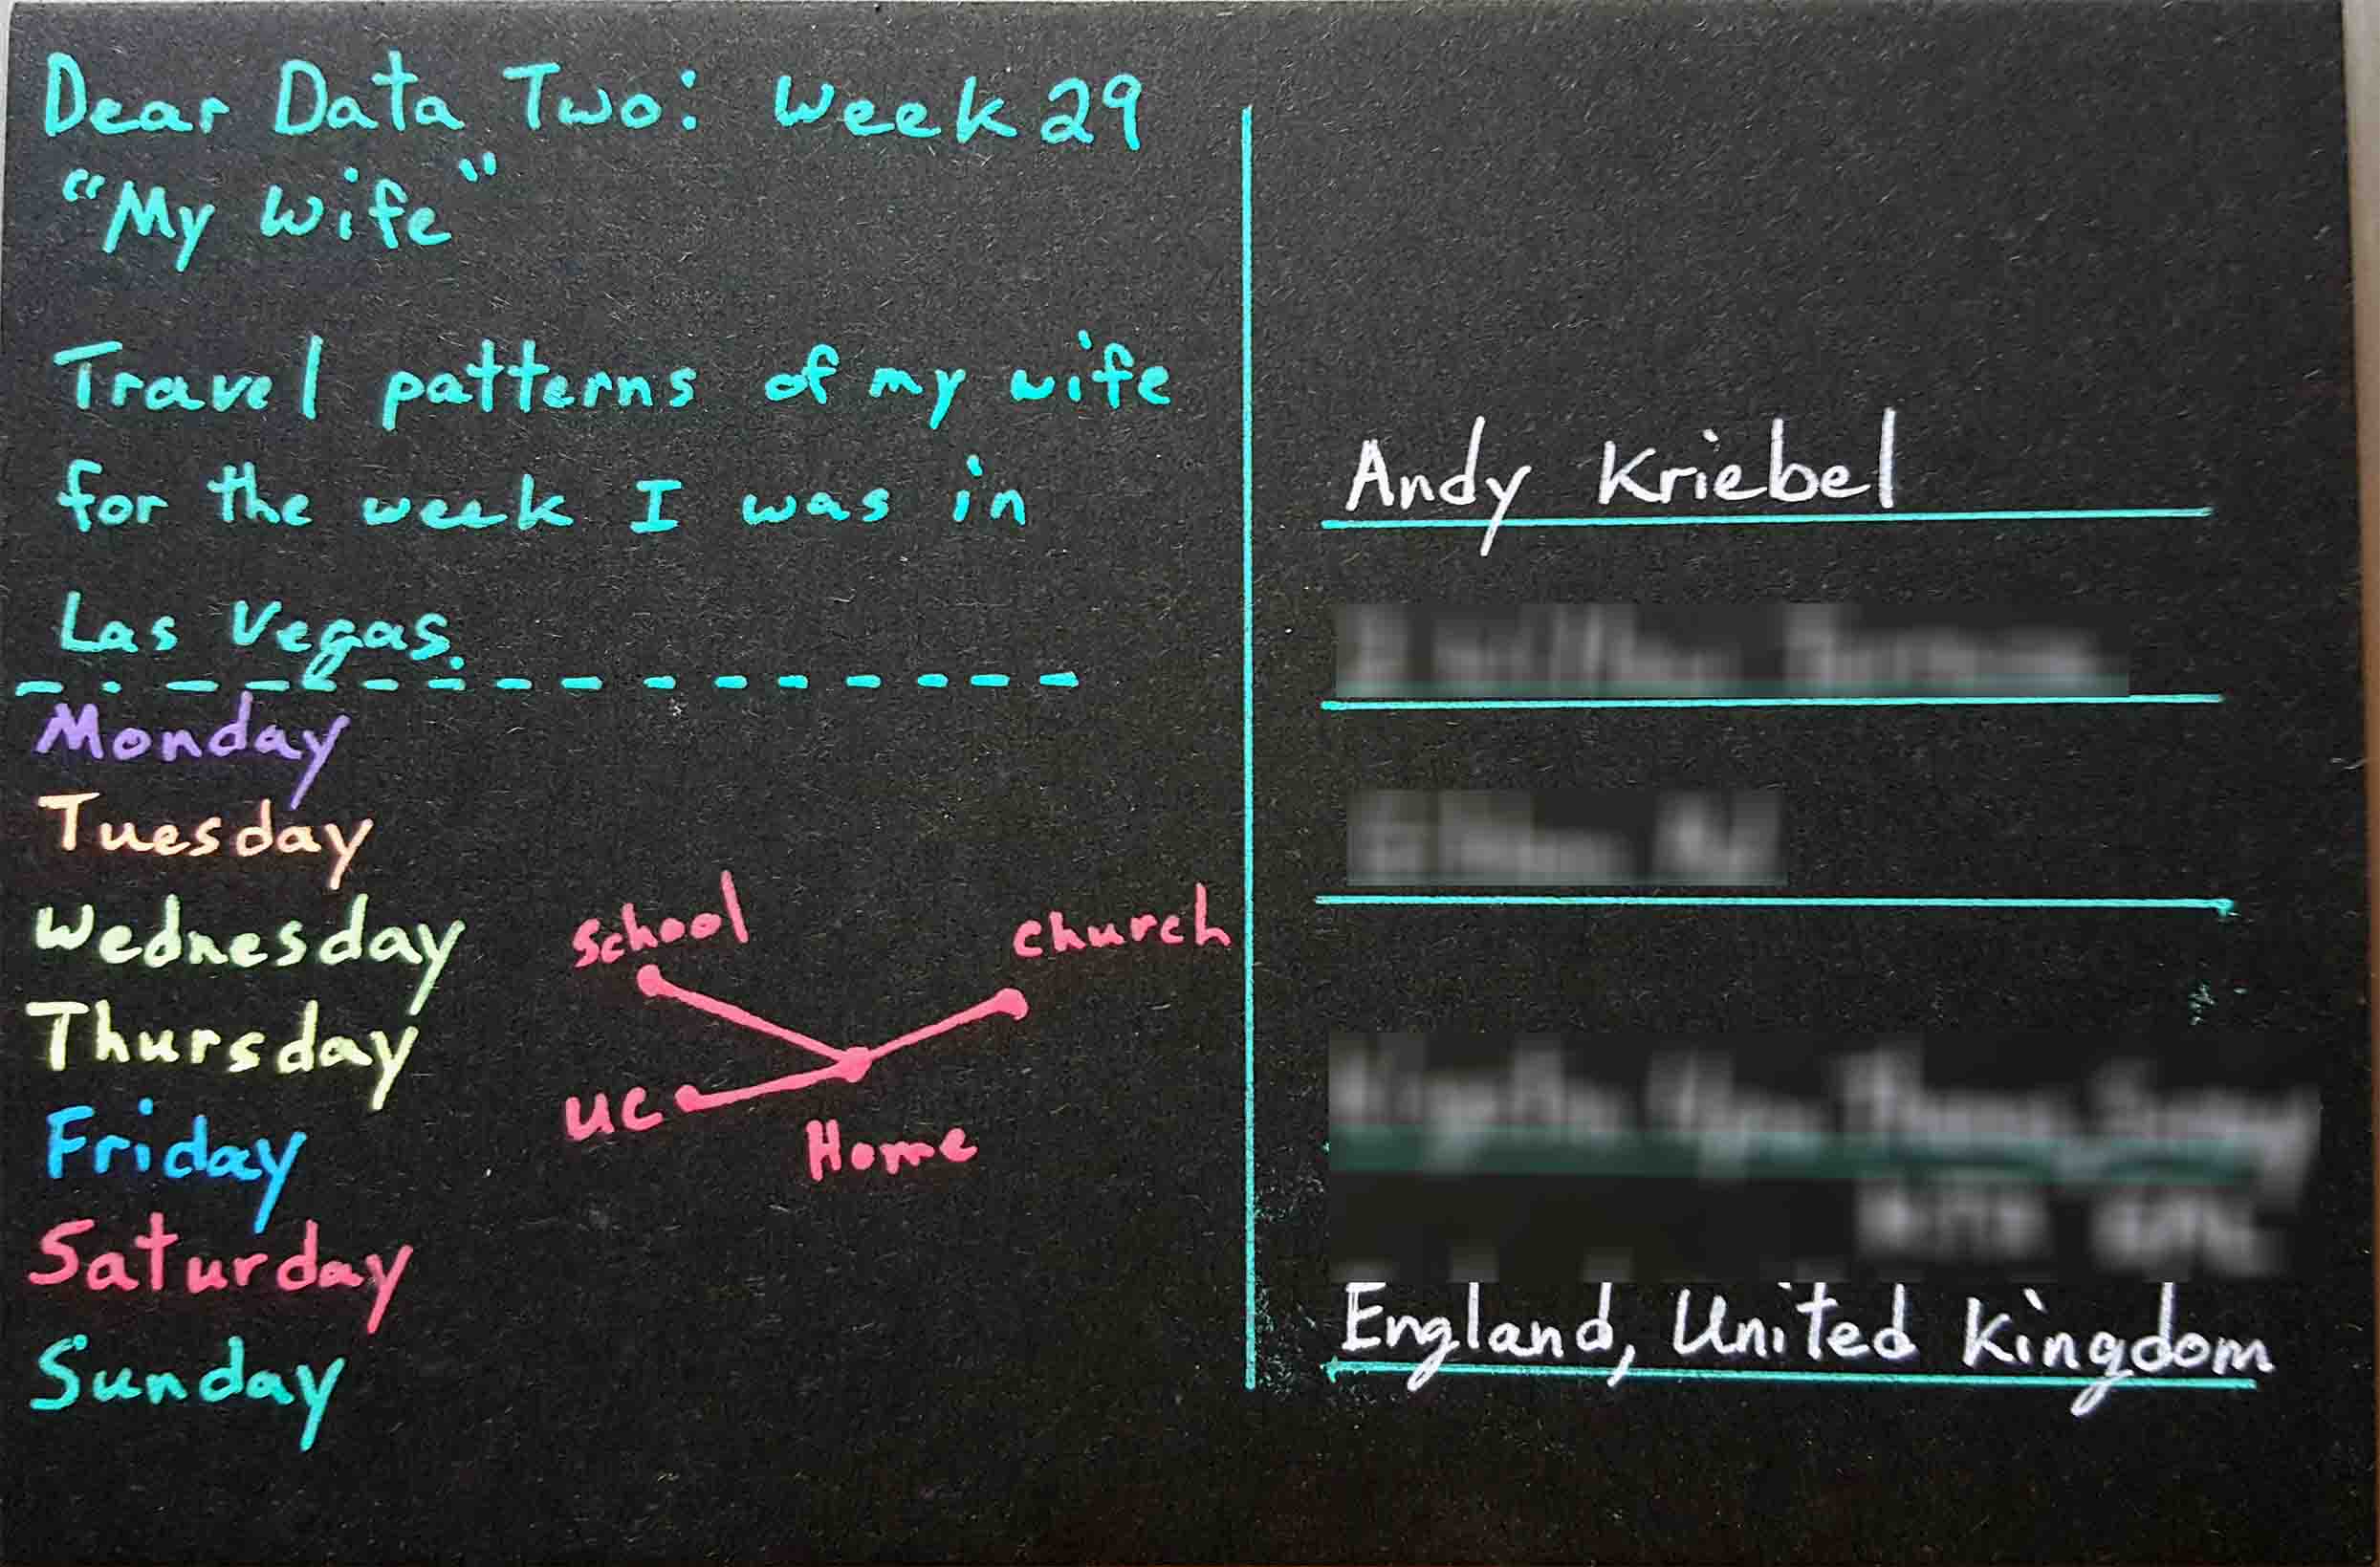 Dear Data Two: Week 29
"My Wife"
Travel patterns of my wife
for the week I was in
Las Vegas.
Monday
Tuesday
Wednesday
Thursday
Friday
Saturday
Sunday
School
Church
UC
Home
Andy Kriebel
England, United Kingdom